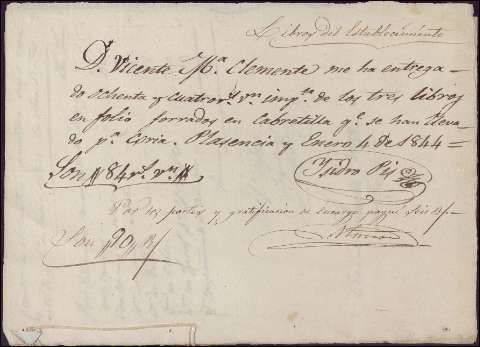 Libros del Establecimiento
D. Vicente M.ª Clemente me ha entrega-
do ochenta y cuatro r.s v.n imp.te de los tres libros
en folio forrados en Cabretilla q.e se han lleva-
do p.a Coria. Plasencia y Enero 4 de 1844=
Son 84 r.s v.n
Isidro Pis
Por los portes y gratificacion de encargo pagué seis
Son 90